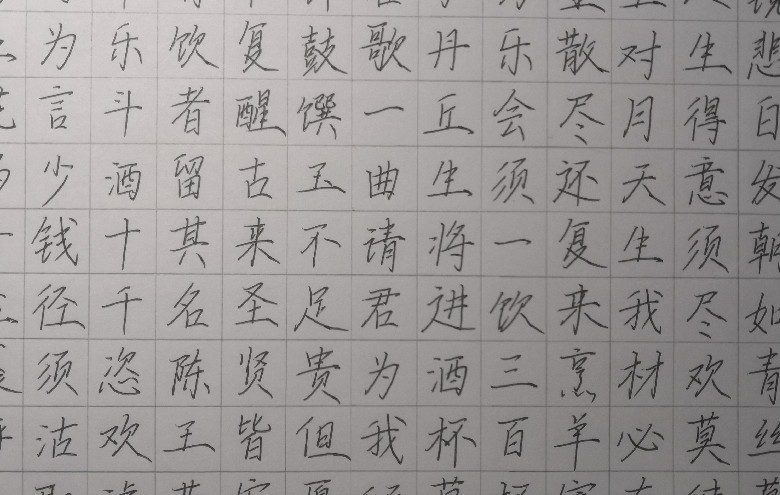 悲白发朝如青丝
生得意须尽欢莫
对月天生我材必
散尽还复来烹羊
乐会须一饮三百
丹丘生将进酒杯
歌一曲请君为我
鼓馔玉不足贵但
复醒古来圣贤皆
饮者留其名陈王
乐斗酒十千恣欢
为言少钱径须沽